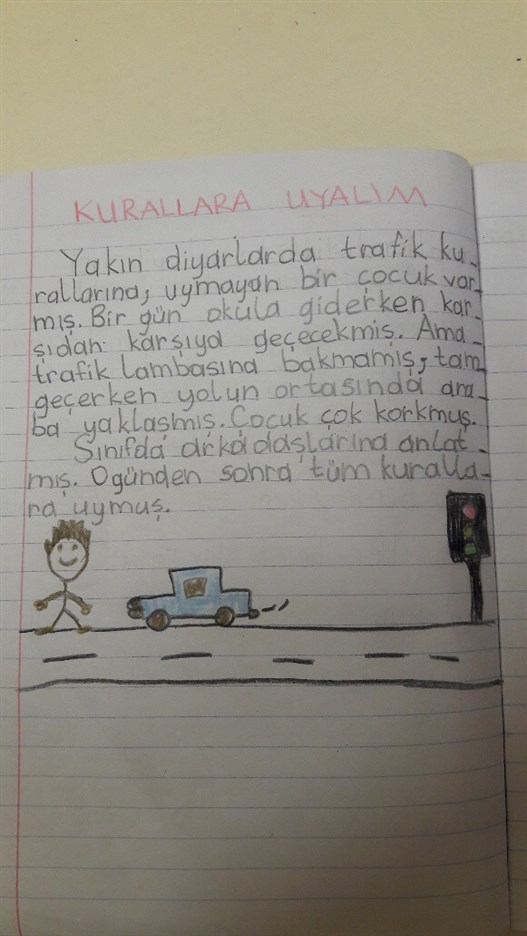 KURALLARA UYALIM
Yakın diyarlarda trafik ku-
rallarına, uymayan bir çocuk var-
mış. Bir gün okula giderken kar-
şıdan karşıya geçecekmiş. Ama
trafik lambasına bakmamış, tam
geçerken yolun ortasında ara-
ba yaklaşmış. Çocuk çok korkmuş.
Sınıfda arkadaşlarına anlat-
mış. Ogünden sonra tüm kuralla-
ra uymuş.